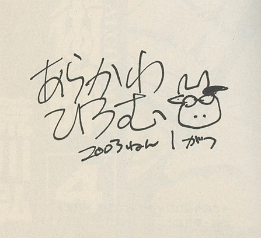 あらかわ
ひろむ
2003ねん 1がつ